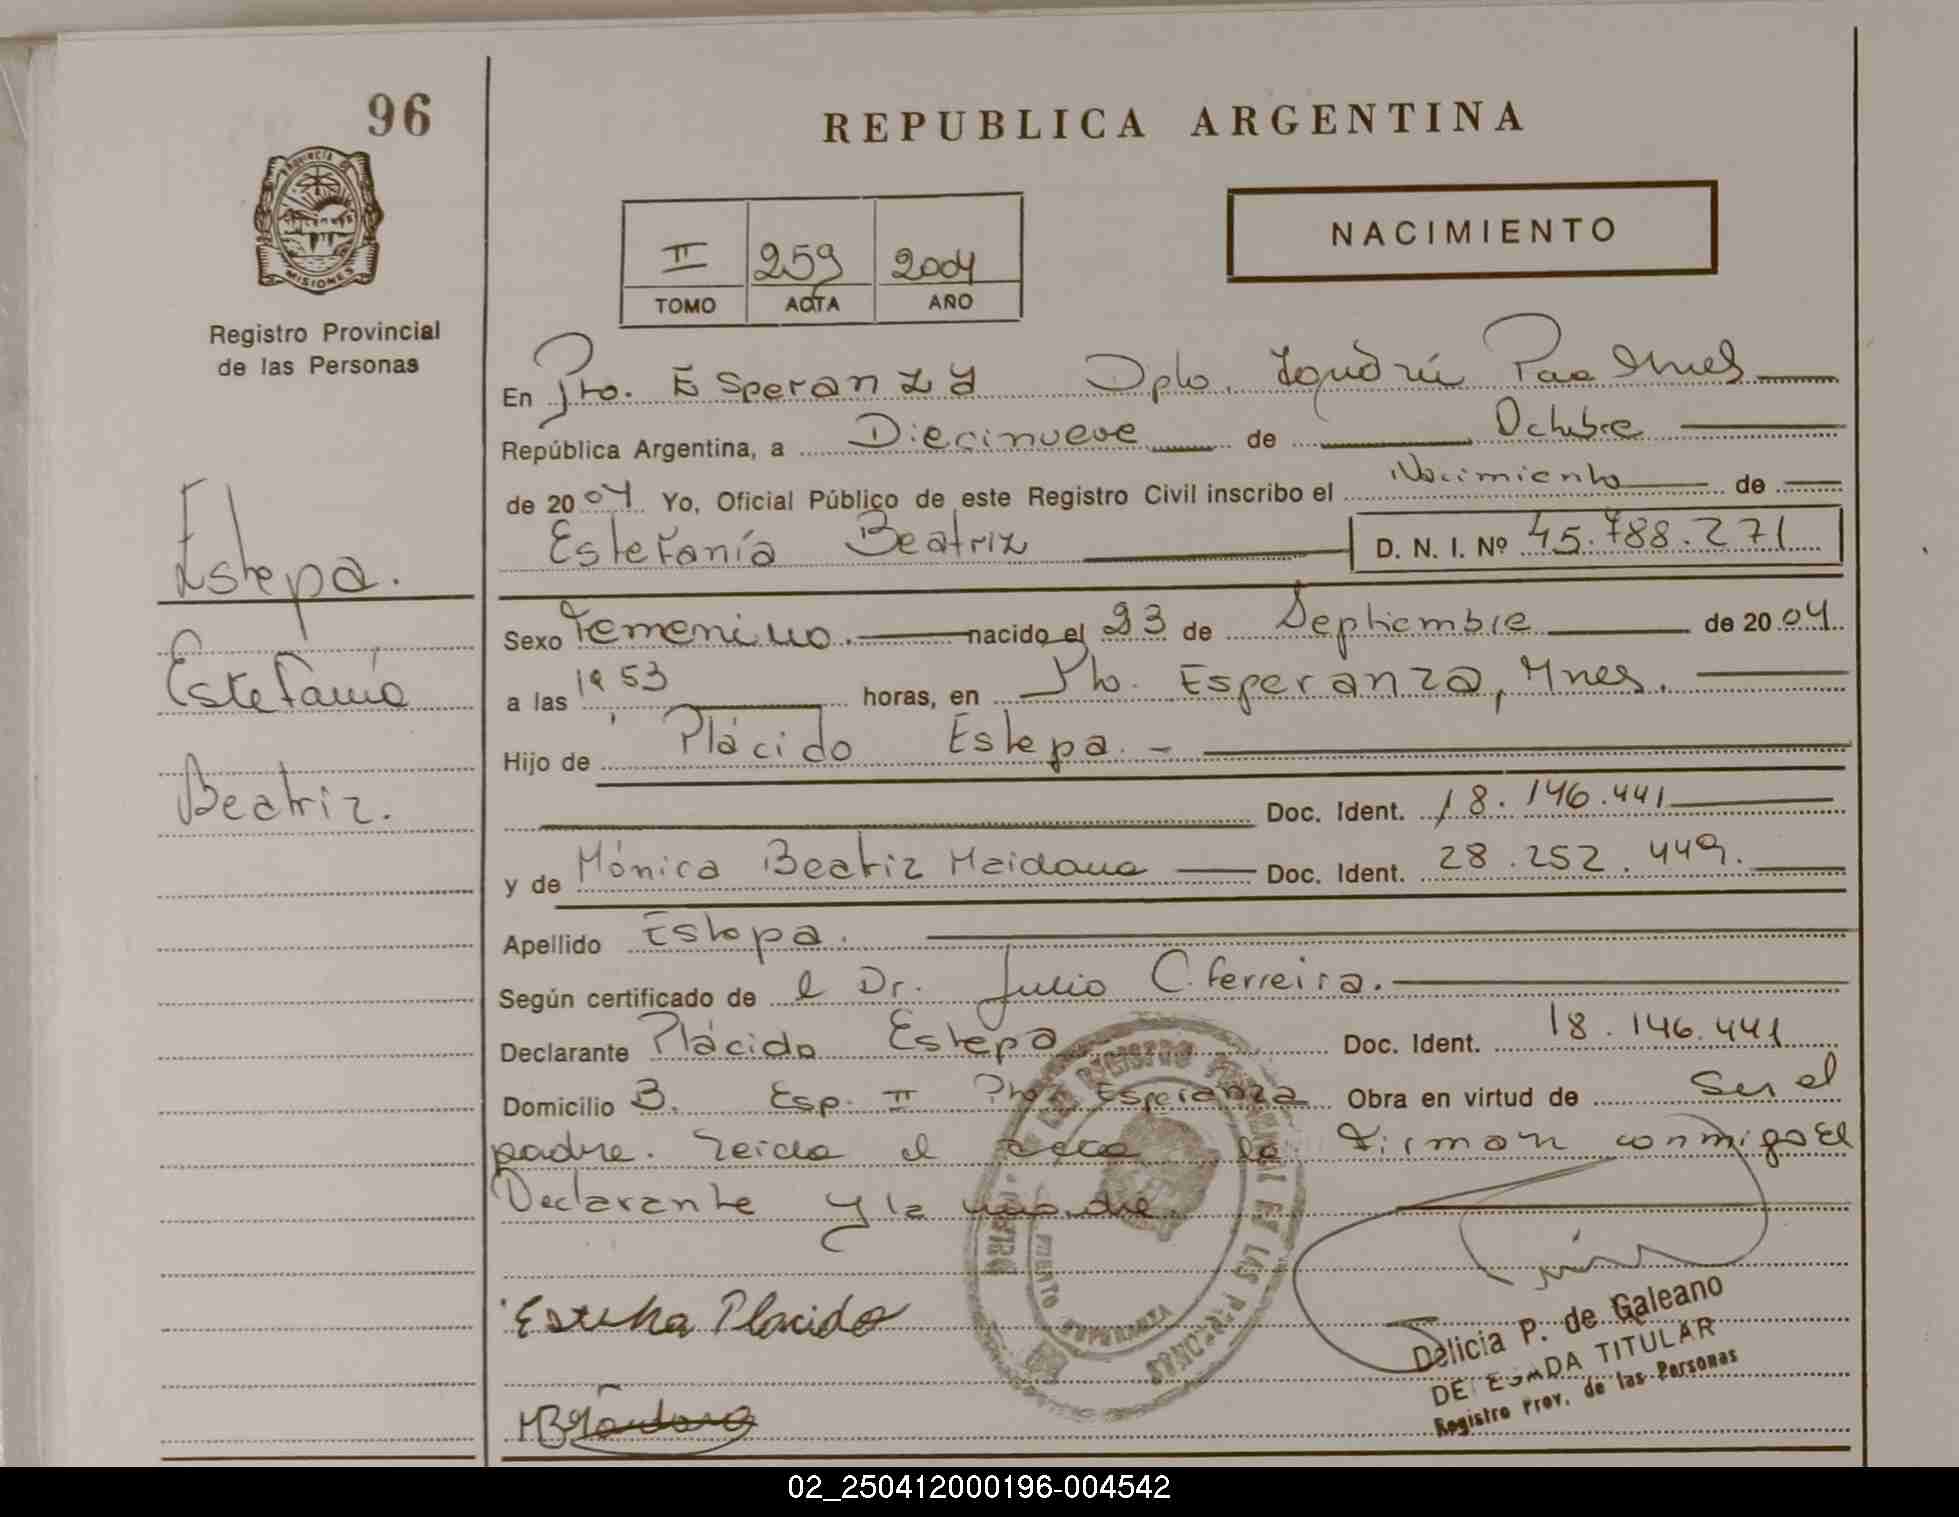 96
REPUBLICA ARGENTINA
PROVINCIA DE
MISIONES
Registro Provincial
de las Personas
NACIMIENTO
II 259 2004
TOMO ACTA AÑO
En Pto. Esperanza Dpto. Iguazú Pcia Mnes
República Argentina, a Diecinueve de Octubre
de 2004 Yo, Oficial Público de este Registro Civil inscribo el Nacimiento de
Estefanía Beatriz D. N. I. Nº 45.788.271
Estepa.
Estefanía
Beatriz.
Sexo Femenino. nacido el 23 de Septiembre de 2004
a las 19 53 horas, en Pto. Esperanza, Mnes.
Hijo de Plácido Estepa. -
Doc. Ident. 18.146.441
y de Mónica Beatriz Maidana Doc. Ident. 28.252.449.
Apellido Estepa.
Según certificado de el Dr. Julio C. Ferreira.
Declarante Plácido Estepa Doc. Ident. 18.146.441
Domicilio B. Esp. II Pto. Esperanza Obra en virtud de Ser el
padre. Leída el acta la firman conmigo El
Declarante y la madre.
REGISTRO PROVINCIAL DE LAS PERSONAS
PUERTO ESPERANZA
Estepa Placido
Delicia P. de Galeano
DELEGADA TITULAR
Registro Prov. de las Personas
02_250412000196-004542